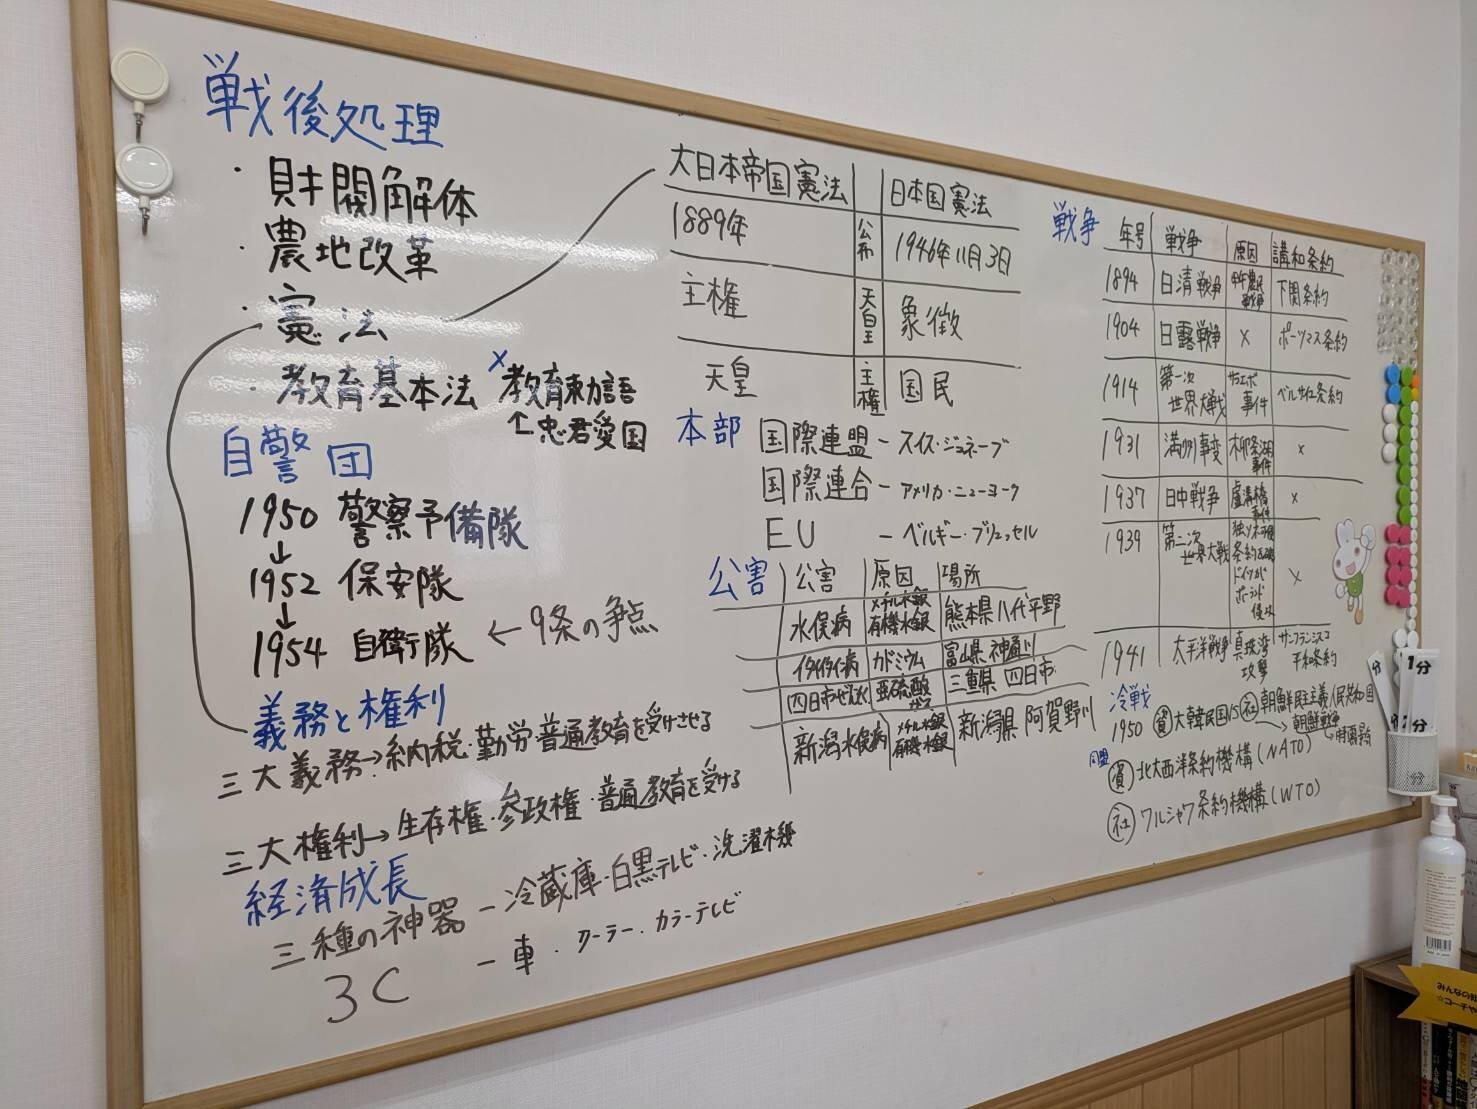 戦後処理
・財閥解体
・農地改革
・憲法
・教育基本法 × 教育勅語
↑忠君愛国
自警団
1950 警察予備隊
↓
1952 保安隊
↓
1954 自衛隊 ← 9条の争点
義務と権利
三大義務→納税・勤労・普通教育を受けさせる
三大権利→生存権・参政権・普通教育を受ける
経済成長
三種の神器 - 冷蔵庫・白黒テレビ・洗濯機
3C - 車・クーラー・カラーテレビ
大日本帝国憲法 日本国憲法
1889年 公布 1946年11月3日
主権 天皇 象徴
天皇 主権 国民
本部 国際連盟 - スイス・ジュネーブ
国際連合 - アメリカ・ニューヨーク
EU - ベルギー・ブリュッセル
公害 公害 原因 場所
水俣病 メチル水銀 有機水銀 熊本県 八代平野
イタイイタイ病 カドミウム 富山県 神通川
四日市ぜんそく 亜硫酸ガス 三重県 四日市
新潟水俣病 メチル水銀 有機水銀 新潟県 阿賀野川
戦争 年号 戦争 原因 講和条約
1894 日清戦争 甲午農民戦争 下関条約
1904 日露戦争 × ポーツマス条約
1914 第一次世界大戦 サラエボ事件 ベルサイユ条約
1931 満州事変 柳条湖事件 ×
1937 日中戦争 盧溝橋事件 ×
1939 第二次世界大戦 独ソ不可侵条約 ドイツがポーランド侵攻 ×
1941 太平洋戦争 真珠湾攻撃 サンフランシスコ平和条約
冷戦
1950 資 大韓民国 VS 社 朝鮮民主主義人民共和国
朝鮮戦争
同盟
資 北大西洋条約機構(NATO)
社 ワルシャワ条約機構(WTO)
1分
みんなの